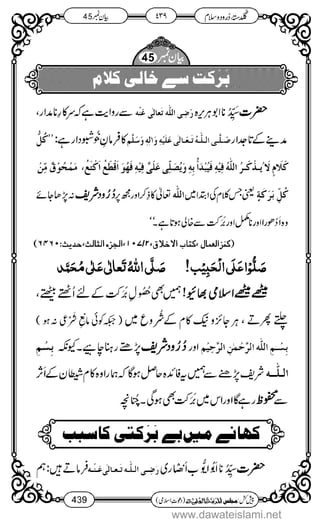 گلدستہ درود و سلام ۴۳۹ بیان نمبر 45
بیان نمبر 45
بَرَکت سے خالی کلام
حضرت سَیِّدُنا ابوہریرہ رَضِیَ اللہُ تَعَالٰی عَنْہ سے روایت ہے کہ سرکارِ نامدار،
مدینے کے تاجدار صَلَّی اللہُ تَعَالٰی عَلَیْہِ وَاٰلِہٖ وَسَلَّم کا فرمانِ خوشبودار ہے: ’’کُلُّ
کَلَامٍ لَا یُذْکَرُ اللہُ فِیْہِ فَیُبْدَأُ بِہٖ وَیُصَلّٰی عَلَیَّ فِیْہِ فَھُوَ اَقْطَعُ اَکْتَعُ، مَمْحُوْقٌ مِّنْ
کُلِّ بَرَکَۃٍ یعنی جس کلام کی ابتدا میں اللہ تعالیٰ کا ذکر اور مجھ پر دُرُودِ شریف نہ پڑھا جائے
وہ ادھورا اور نامکمل اور بَرَکت سے خالی ہوتا ہے۔‘‘
(کنزالعمال، کتاب الاخلاق، ۷/۲ ۱۰، الجزء الثالث، حدیث: ۶۴۶۰)
صَلُّوْا عَلَی الْحَبِیْب! صَلَّی اللہُ تَعَالٰی عَلٰی مُحَمَّد
میٹھے میٹھے اسلامی بھائیو! ہمیں بھی حُصُولِ بَرَکت کے لئے اُٹھتے بیٹھتے،
چلتے پھرتے، ہر جائز و نیک کام کے شروع میں (جبکہ کوئی مانعِ شرعی نہ ہو)
بِسْمِ اللہِ الرَّحْمٰنِ الرَّحِیْم اور دُرُود شریف پڑھتے رہنا چاہیے۔ کیونکہ بِسْمِ
اللہ شریف پڑھنے سے ہمیں یہ فائدہ حاصل ہوگا کہ ہمارا وہ کام شیطان کے اثر
سے محفوظ رہے گا اور اس میں بَرَکت بھی ہوگی۔ چنانچہ
کھانے میں بے بَرَکتی کا سبب
حضرت سَیِّدُنا ابو ایوب انصاری رَضِیَ اللہُ تَعَالٰی عَنْہ فرماتے ہیں: ہم
439 پیش کش: مجلس المدینۃ العلمیۃ (دعوتِ اسلامی)
www.dawateislami.net